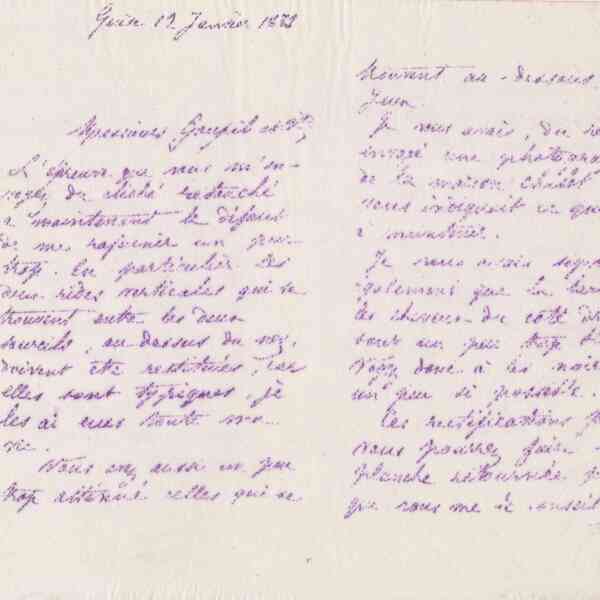 12 Janvier 1872
Messieurs Goupil et Cie
L'épreuve que vous m'en-
voyez du cliché retouché
a maintenant le défaut
de me rajeunir un peu
trop. En particulier les
deux rides verticales qui se
trouvent entre les deux
sourcils, au-dessus du nez,
doivent être restituées, car
elles sont typiques, je
les ai eues toute ma
vie.
Vous avez aussi un peu
trop atténué celles qui se
trouvent au-dessous
yeux.
Je vous avais, du
envoyé une photogra
de la maison
vous indiquait ce qu
à
Je vous avais
galement que la bar
les cheveux du côté
sont un peu trop
donc à les noir
un peu si possible.
Les rectifications
vous pourrez faire
planche retournée
que vous me le conseil